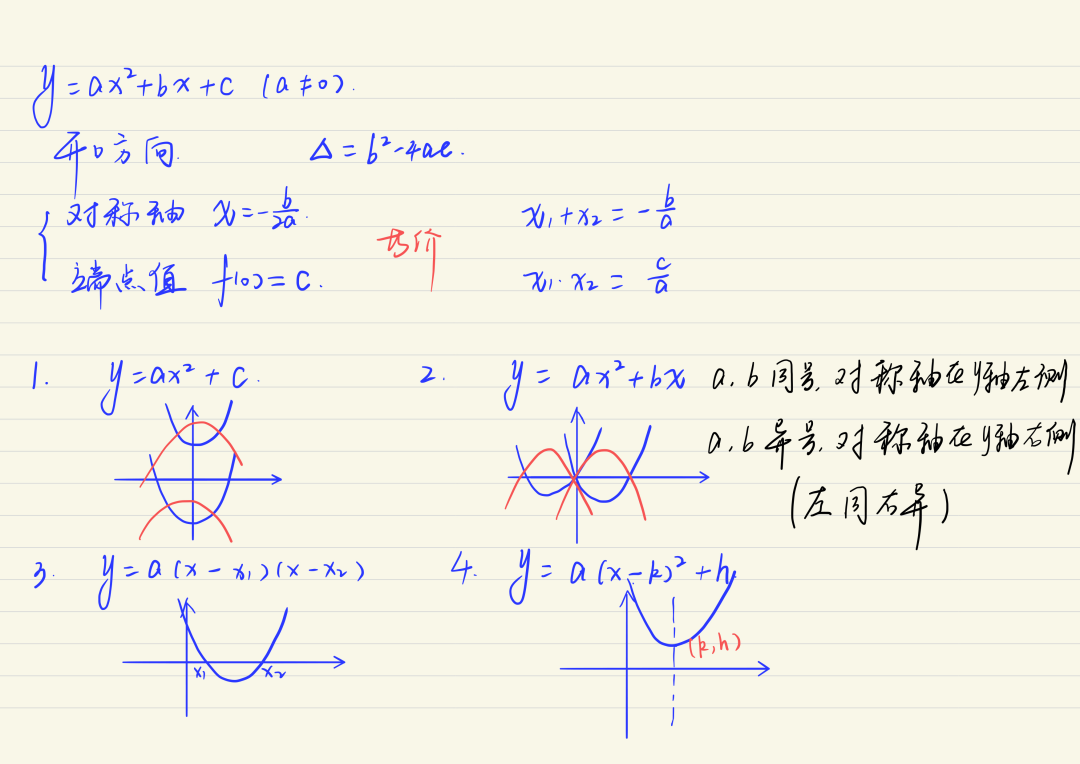 y=ax²+bx+c (a≠0).
开口方向. Δ=b²-4ac.
对称轴 x=-b/2a. x₁+x₂=-b/a
端点值 f(0)=c. x₁·x₂=c/a
1. y=ax²+c. 2. y=ax²+bx a.b同号,对称轴在y轴左侧
a,b异号,对称轴在y轴右侧
(左同右异)
3. y=a(x-x₁)(x-x₂) 4. y=a(x-k)²+h
(k,h)
x₁ x₂